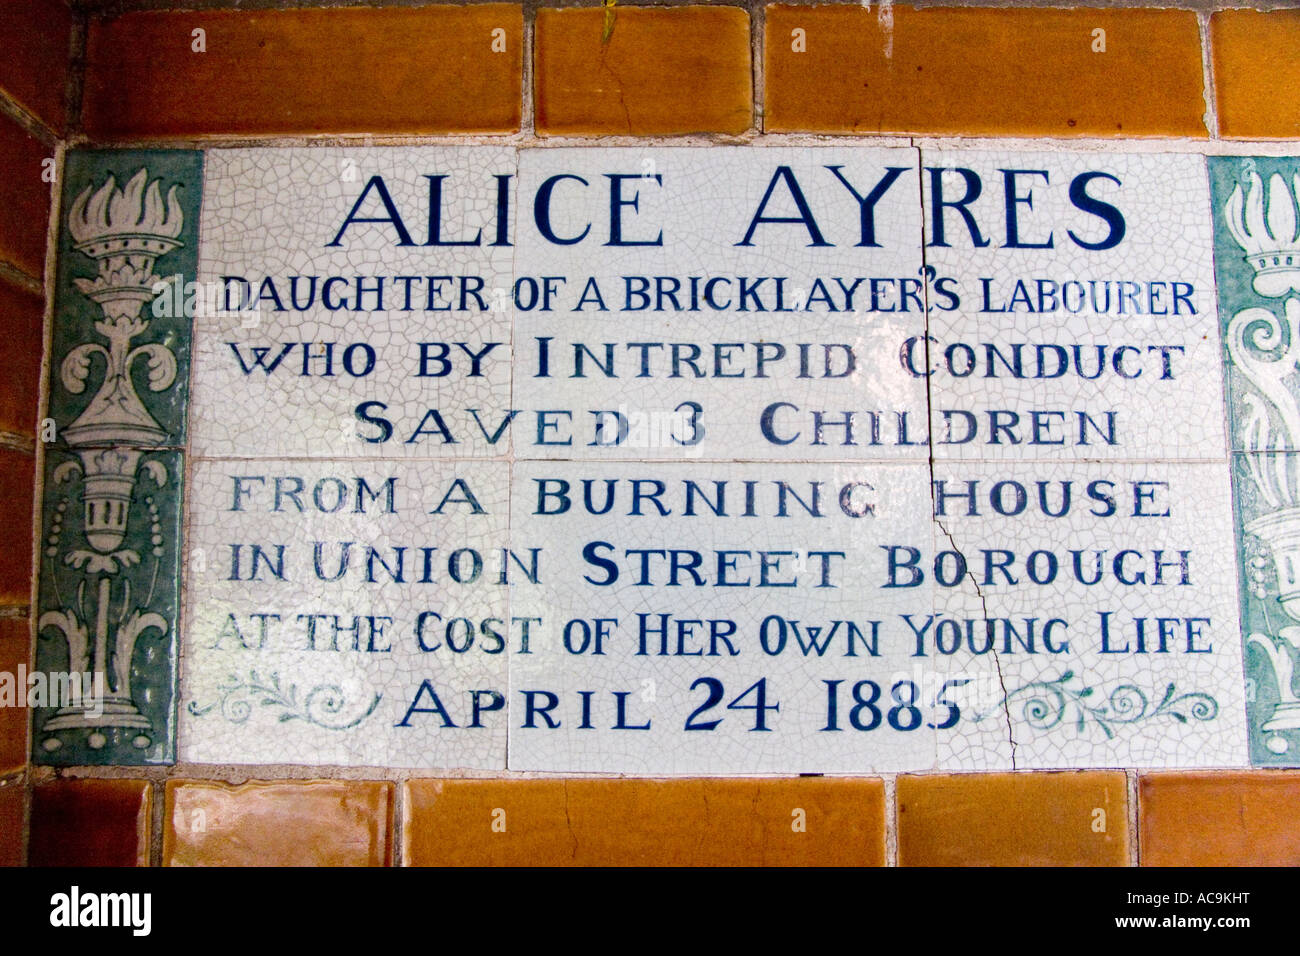 ALICE AYRES
DAUGHTER OF A BRICKLAYER'S LABOURER
WHO BY INTREPID CONDUCT
SAVED 3 CHILDREN
FROM A BURNING HOUSE
IN UNION STREET BOROUGH
AT THE COST OF HER OWN YOUNG LIFE
APRIL 24 1885
a a a
a alamy
a a a
alamy
Image ID: AC9KHT
www.alamy.com